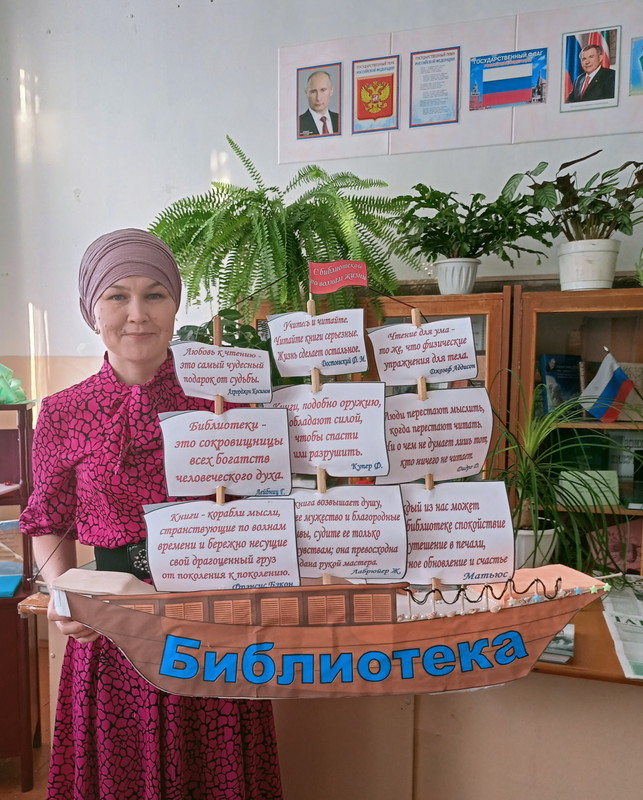 ГОСУДАРСТВЕННЫЙ ГЕРБ
РОССИЙСКОЙ ФЕДЕРАЦИИ
ГОСУДАРСТВЕННЫЙ ГИМН
РОССИЙСКОЙ ФЕДЕРАЦИИ
ГОСУДАРСТВЕННЫЙ ФЛАГ
С библиотекой
по волнам жизни
Учитесь и читайте.
Читайте книги серьезные.
Жизнь сделает остальное.
Достоевский Ф. М.
Чтение для ума -
то же, что физические
упражнения для тела.
Джозеф Аддисон
Любовь к чтению -
это самый чудесный
подарок от судьбы.
Книги, подобно оружию,
обладают силой,
чтобы спасти
или разрушить.
Купер Ф.
Люди перестают мыслить,
когда перестают читать.
и о чем не думает лишь тот,
кто ничего не читает
Дидро Д.
Библиотеки -
это сокровищницы
всех богатств
человеческого духа.
Лейбниц Г.
Книги - корабли мысли,
странствующие по волнам
времени и бережно несущие
свой драгоценный груз
от поколения к поколению.
Фрэнсис Бэкон
книга возвышает душу,
ее мужество и благородные
судите ее только
чувствам; она превосходна
дана рукой мастера.
Лабрюйер Ж.
из нас может
библиотеке спокойствие
утешение в печали,
обновление и счастье
Матьюс
Библиотека